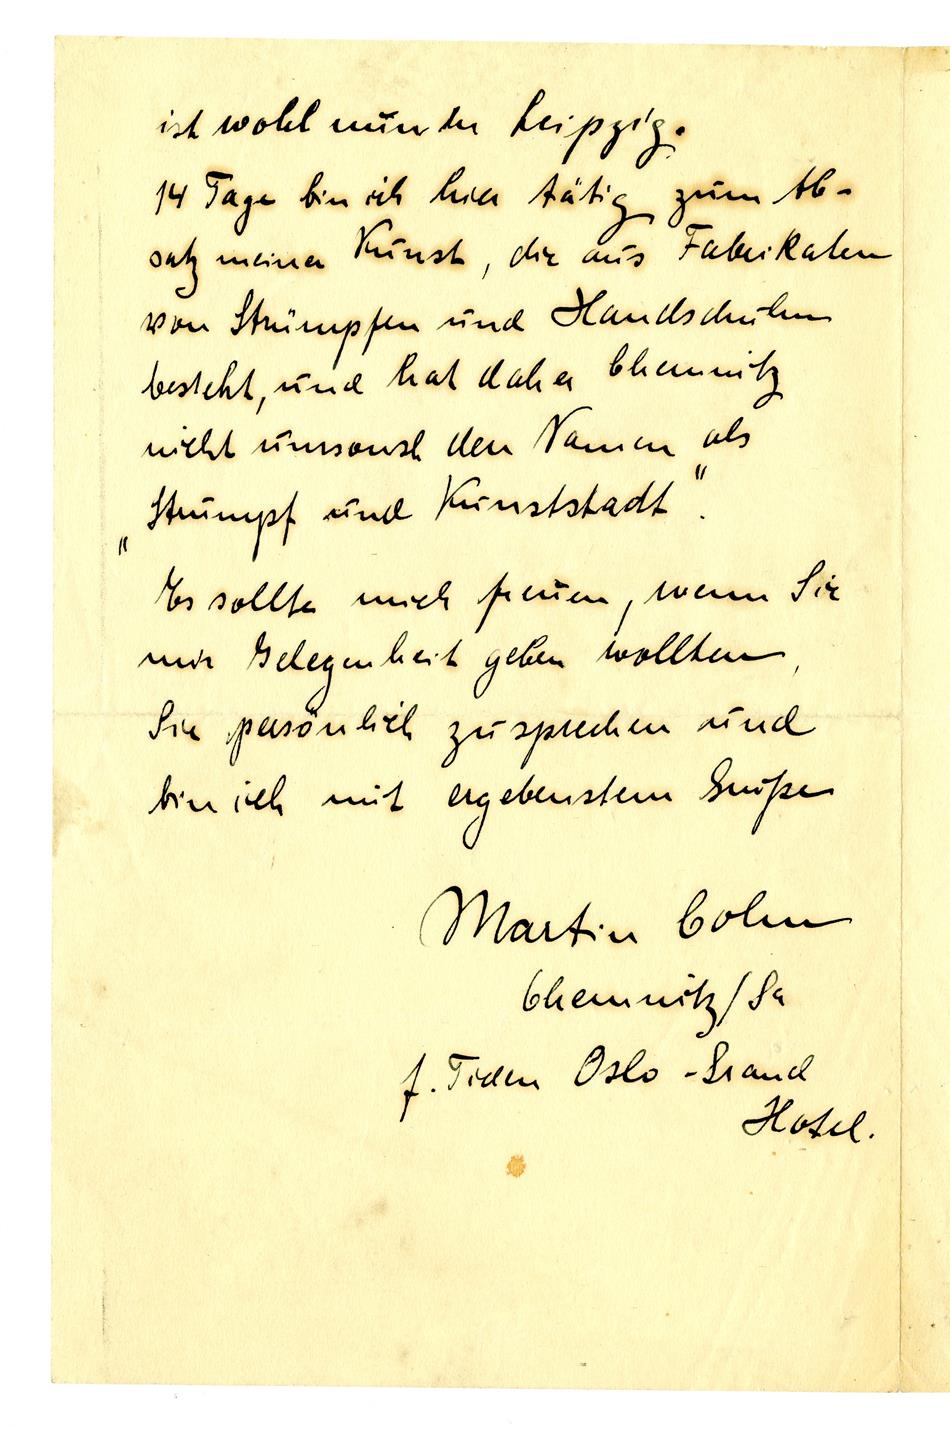 ist wohl nun in Leipzig.
14 Tage bin ich hier tätig zum Ab-
satz meiner Kunst, die aus Fabrikaten
von Strümpfen und Handschuhen
besteht, und hat daher Chemnitz
nicht umsonst den Namen als
„Strumpf und Kunststadt".
Es sollte mich freuen, wenn Sie
mir Gelegenheit geben wollten,
Sie persönlich zu sprechen und
bin ich mit ergebenstem Gruße
Martin Cohn
Chemnitz/Sa
f. Tiden Oslo - Grand
Hotel.